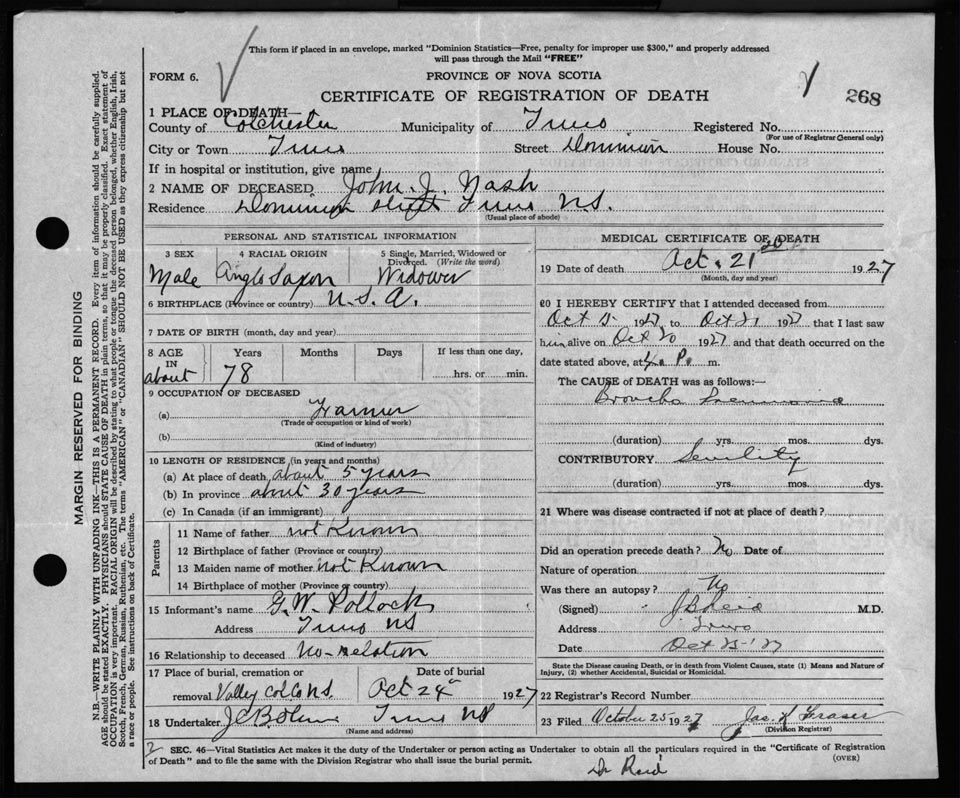 This form if placed in an envelope, marked "Dominion Statistics—Free, penalty for improper use $300," and properly addressed
will pass through the Mail "FREE"
FORM 6.
PROVINCE OF NOVA SCOTIA
268
CERTIFICATE OF REGISTRATION OF DEATH
1 PLACE OF DEATH—
County of Colchester Municipality of Truro Registered No.
(For use of Registrar General only)
City or Town Truro Street Dominion House No.
If in hospital or institution, give name
2 NAME OF DECEASED John. J. Nash
Residence Dominion Street Truro N.S.
(Usual place of abode)
PERSONAL AND STATISTICAL INFORMATION
3 SEX 4 RACIAL ORIGIN 5 Single, Married, Widowed or
Divorced. (Write the word)
Male Anglo Saxon Widower
6 BIRTHPLACE (Province or country) U.S.A.
7 DATE OF BIRTH (month, day and year)
8 AGE IN Years Months Days If less than one day,
about 78 hrs. or min.
9 OCCUPATION OF DECEASED
(a) Farmer
(Trade or occupation or kind of work)
(b)
(Kind of industry)
10 LENGTH OF RESIDENCE (in years and months)
(a) At place of death about 5 years
(b) In province about 30 years
(c) In Canada (if an immigrant)
Parents
11 Name of father not Known
12 Birthplace of father (Province or country)
13 Maiden name of mother not Known
14 Birthplace of mother (Province or country)
15 Informant's name G.W. Pollock
Address Truro NS
16 Relationship to deceased no-relation
17 Place of burial, cremation or Date of burial
removal Valley Col Co NS. Oct 24th 1927
18 Undertaker Truro NS
(Name and address)
MEDICAL CERTIFICATE OF DEATH
19 Date of death Oct. 21 1927
(Month, day and year)
20 I HEREBY CERTIFY that I attended deceased from
Oct 1927 to Oct 21 1927 that I last saw
him alive on Oct 20 1927 and that death occurred on the
date stated above, at 4 P. m.
The CAUSE of DEATH was as follows:—
Broncho Pneumonia
(duration) yrs. mos. dys.
CONTRIBUTORY Senility
(duration) yrs. mos. dys.
21 Where was disease contracted if not at place of death?
Did an operation precede death? No Date of
Nature of operation
Was there an autopsy? No
(Signed) Reid M.D.
Address Truro
Date Oct '27
State the Disease causing Death, or in death from Violent Causes, state (1) Means and Nature of
Injury, (2) whether Accidental, Suicidal or Homicidal.
22 Registrar's Record Number
23 Filed October 25 1927 Jas. Fraser
(Division Registrar)
2 SEC. 46—Vital Statistics Act makes it the duty of the Undertaker or person acting as Undertaker to obtain all the particulars required in the "Certificate of Registration
of Death" and to file the same with the Division Registrar who shall issue the burial permit.
(OVER)
Dr Reid
MARGIN RESERVED FOR BINDING
N.B.—WRITE PLAINLY WITH UNFADING INK—THIS IS A PERMANENT RECORD. Every item of information should be carefully supplied.
AGE should be stated EXACTLY. PHYSICIANS should STATE CAUSE OF DEATH in plain terms, so that it may be properly classified. Exact statement of
OCCUPATION is very important. RACIAL ORIGIN will be described by stating to what people or tongue the deceased person belonged, whether English, Irish,
Scotch, French, German, Russian, Ruthenian, etc. The terms "AMERICAN" or "CANADIAN" SHOULD NOT BE USED as they express citizenship but not
a race or people. See instructions on back of Certificate.